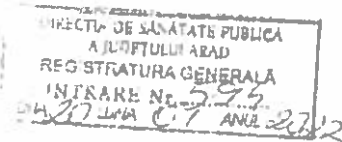 DIRECȚIA DE SĂNĂTATE PUBLICĂ
A JUDEȚULUI ARAD
REGISTRATURA GENERALĂ
INTRARE Nr. 595
ZIUA 20 LUNA 01 ANUL 2012